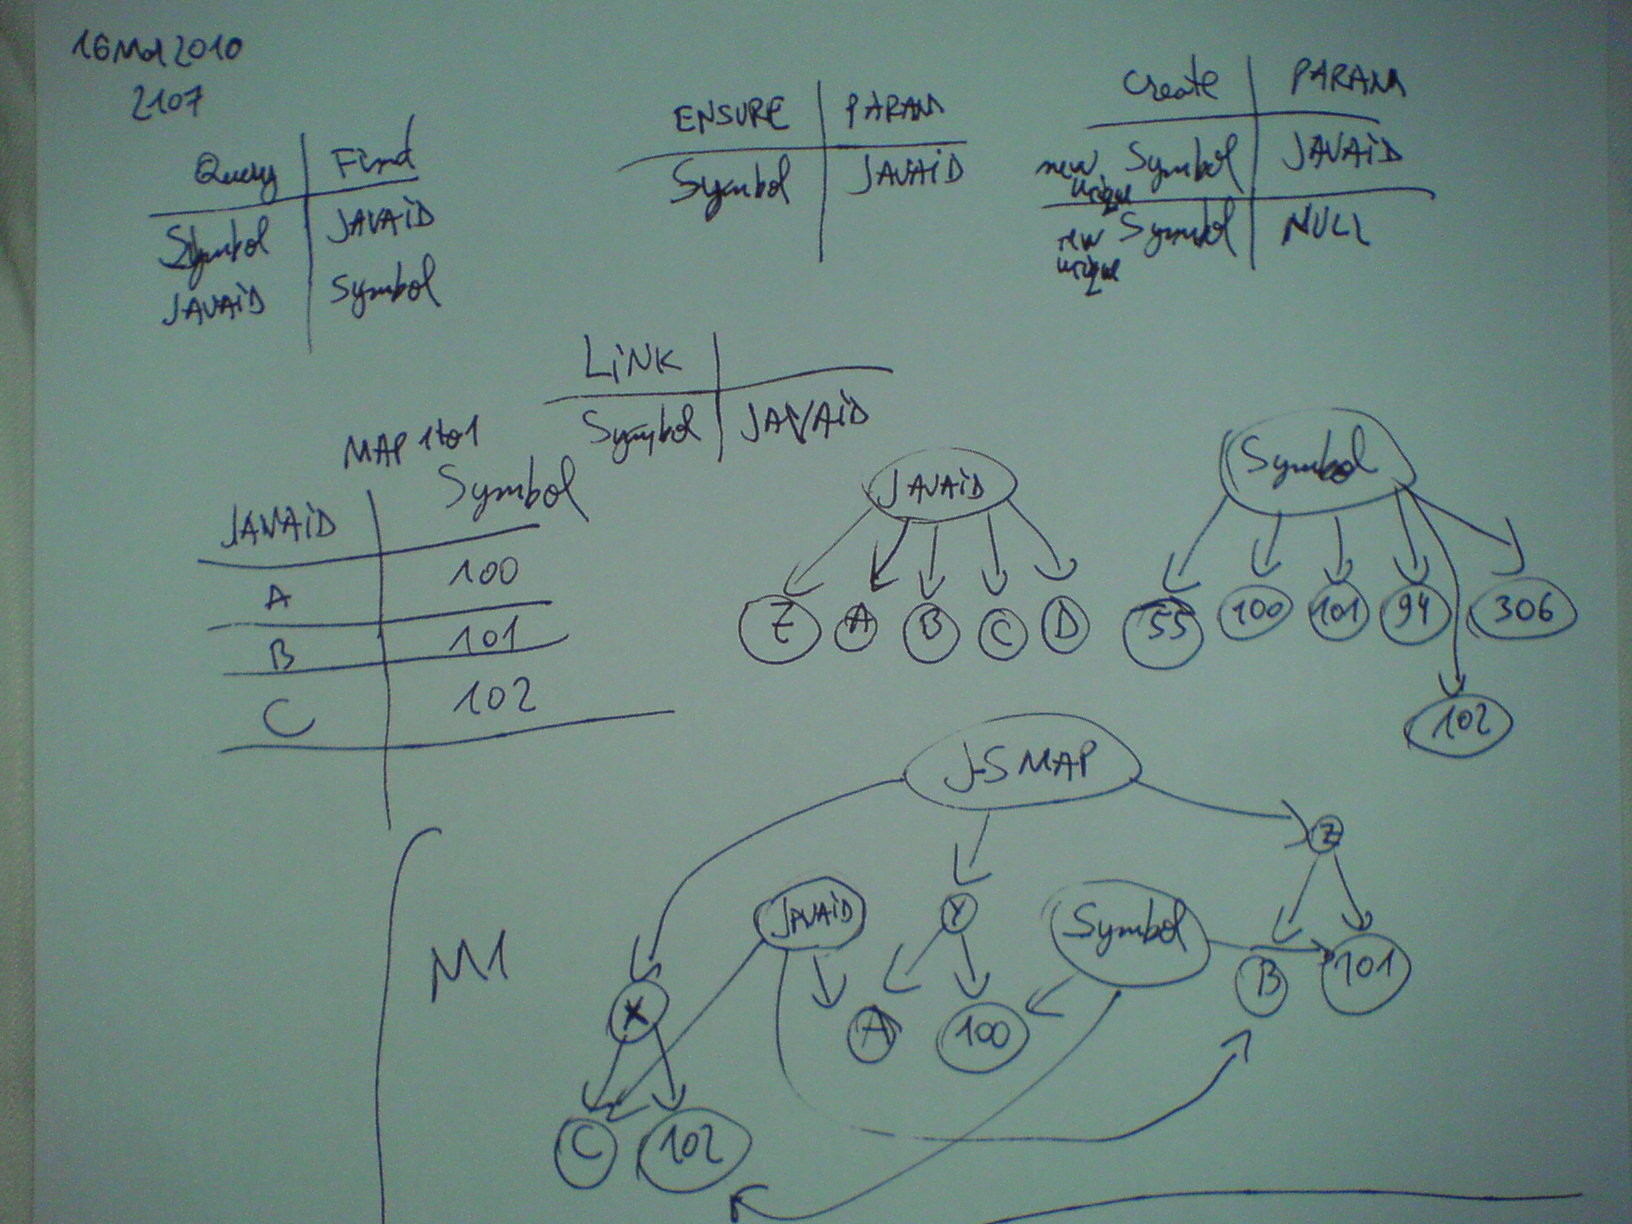 16 Mar 2010
2107
Query Find
Symbol JAVAiD
JAVAiD Symbol
ENSURE PARAM
Symbol JAVAiD
Create PARAM
new unique Symbol JAVAiD
new unique Symbol NULL
LiNK
Symbol JAVAiD
MAP 1to1
JAVAiD Symbol
A 100
B 101
C 102
JAVAiD
Z A B C D
Symbol
55 100 101 94 306
102
J-S MAP
Z
JAVAiD Y Symbol
M1
B 101
X
A 100
C 102